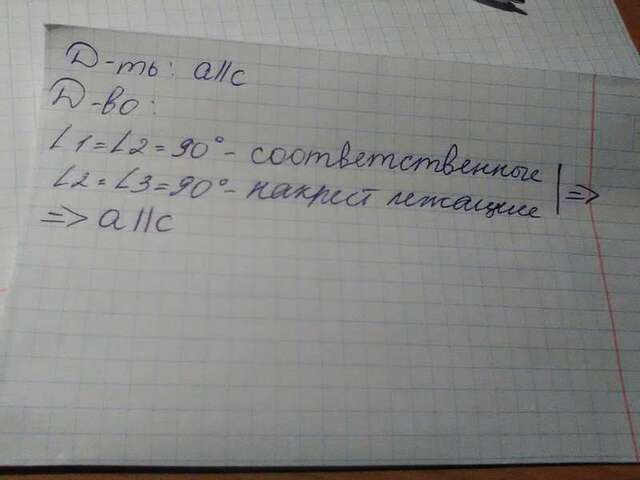 Д-ть: a||c
Д-во:
∠1=∠2=90°- соответственные
∠2=∠3=90°- накрест лежащие | =>
=> a||c